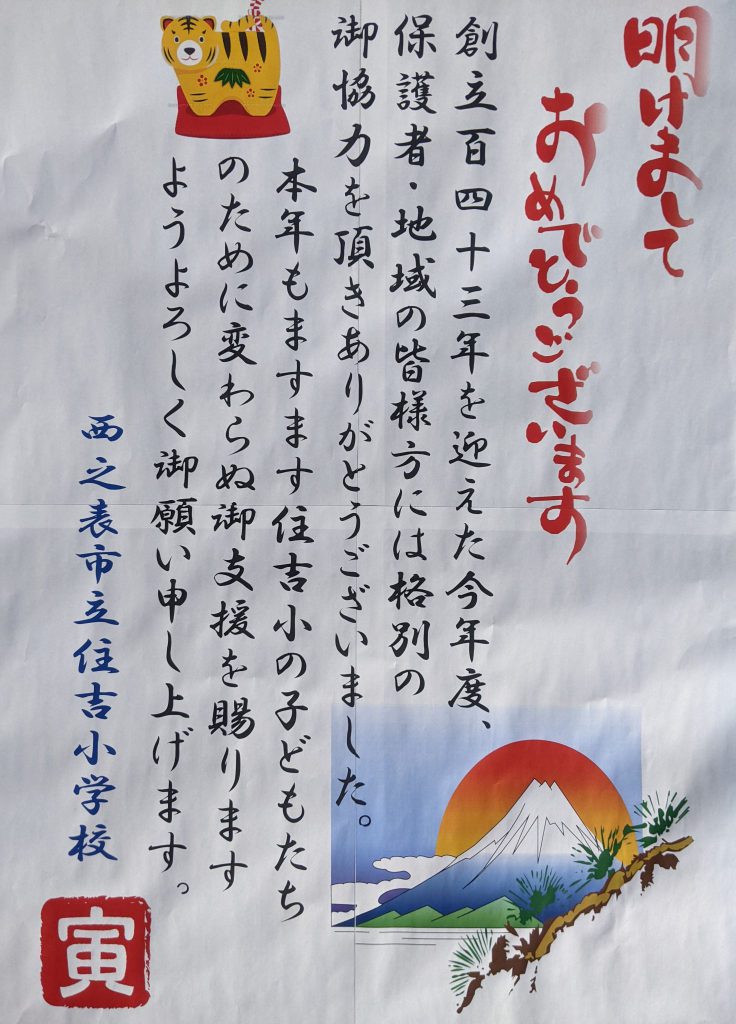 明けまして
おめでとうございます
創立百四十三年を迎えた今年度、
保護者・地域の皆様方には格別の
御協力を頂きありがとうございました。
本年もますます住吉小の子どもたち
のために変わらぬ御支援を賜ります
ようよろしく御願い申し上げます。
西之表市立住吉小学校
寅